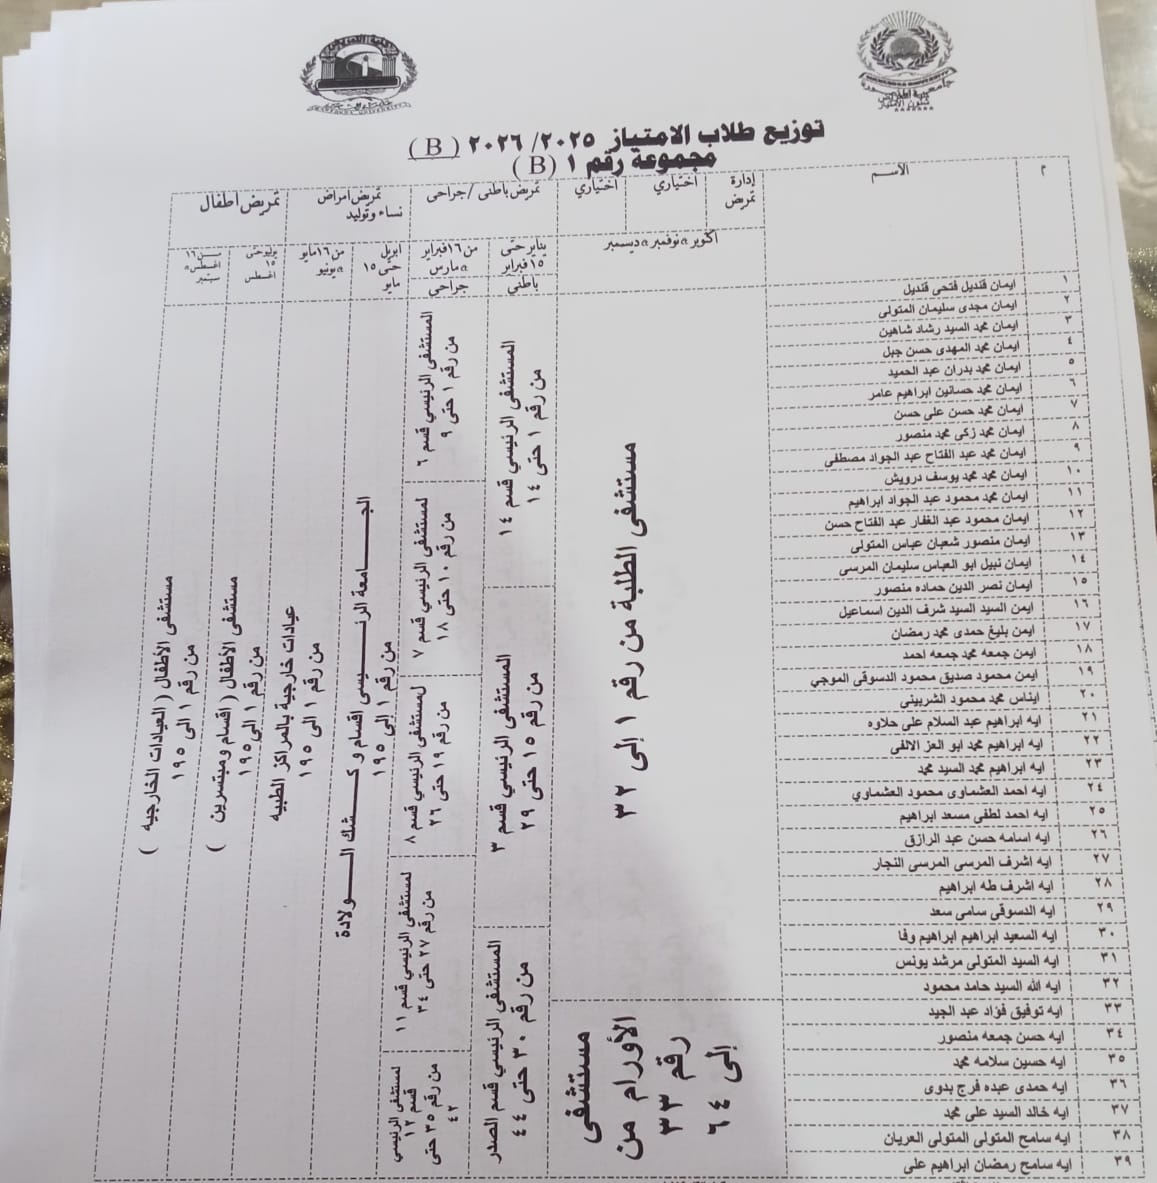 توزيع طلاب الامتياز ٢٠٢٥/ ٢٠٢٦ ( B )
مجموعة رقم ١ (B )
م
الأسم
إدارة تمريض
اختياري
اختياري
تمريض باطنى / جراحى
تمريض امراض نساء وتوليد
تمريض اطفال
أكتوبر ه نوفمبر ه ديسمبر
يناير حتى ١٥ فبراير
باطنى
من ١٦ فبراير ه مارس
جراحى
ابريل حتى ١٥ مايو
من ١٦ مايو ه يونيو
يوليو حتى ١٥ اغسطس
من ١٦ اغسطس ه سبتمبر
١ ايمان قنديل فتحى قنديل
٢ ايمان مجدى سليمان المتولى
٣ ايمان محمد السيد رشاد شاهين
٤ ايمان محمد المهدى حسن جبل
٥ ايمان محمد بدران عبد الحميد
٦ ايمان محمد حسانين ابراهيم عامر
٧ ايمان محمد حسن على حسن
٨ ايمان محمد زكى محمد منصور
٩ ايمان محمد عبد الفتاح عبد الجواد مصطفى
١٠ ايمان محمد محمد يوسف درويش
١١ ايمان محمد محمود عبد الجواد ابراهيم
١٢ ايمان محمود عبد الغفار عبد الفتاح حسن
١٣ ايمان منصور شعبان عباس المتولى
١٤ ايمان نبيل ابو العباس سليمان المرسى
١٥ ايمان نصر الدين حماده منصور
١٦ ايمن السيد السيد شرف الدين اسماعيل
١٧ ايمن بليغ حمدى محمد رمضان
١٨ ايمن جمعه محمد جمعه احمد
١٩ ايمن محمود صديق محمود الدسوقى الموجي
٢٠ ايناس محمد محمود الشربينى
٢١ ايه ابراهيم عبد السلام على حلاوه
٢٢ ايه ابراهيم محمد ابو العز الالفى
٢٣ ايه ابراهيم محمد السيد محمد
٢٤ ايه احمد العشماوى محمود العشماوي
٢٥ ايه احمد لطفى مسعد ابراهيم
٢٦ ايه اسامه حسن عبد الرازق
٢٧ ايه اشرف المرسى المرسى النجار
٢٨ ايه اشرف طه ابراهيم
٢٩ ايه الدسوقى سامى سعد
٣٠ ايه السعيد ابراهيم ابراهيم وفا
٣١ ايه السيد المتولى مرشد يونس
٣٢ ايه الله السيد حامد محمود
٣٣ ايه توفيق فؤاد عبد الجيد
٣٤ ايه حسن جمعه منصور
٣٥ ايه حسين سلامه محمد
٣٦ ايه حمدى عبده فرج بدوى
٣٧ ايه خالد السيد على محمد
٣٨ ايه سامح المتولى المتولى العريان
٣٩ ايه سامح رمضان ابراهيم على
مستشفى الطلبة من رقم ١ إلى ٣٢
مستشفى
الأورام من
رقم ٣٣
إلى ٦٤
المستشفى الرئيسي قسم ١٤
من رقم ١ حتى ١٤
المستشفى الرئيسي قسم ٣
من رقم ١٥ حتى ٢٩
المستشفى الرئيسي قسم الصدر
من رقم ٣٠ حتى ٤٤
المستشفى الرئيسي قسم ٦
من رقم ١ حتى ٩
لمستشفى الرئيسي قسم ٧
من رقم ١٠ حتى ١٨
لمستشفى الرئيسي قسم ٨
من رقم ١٩ حتى ٢٦
المستشفى الرئيسي قسم ١١
من رقم ٢٧ حتى ٣٤
لمستشفى الرئيسي
قسم ١٢
من رقم ٣٥ حتى
٤٢
الجامعة الرئيسى اقسام و كشك الولادة
من رقم ١ إلى ١٩٥
عيادات خارجية بالمراكز الطبيه
من رقم ١ الى ١٩٥
مستشفى الأطفال ( اقسام ومبتسرين )
من رقم ١ الى ١٩٥
مستشفى الأطفال ( العيادات الخارجيه )
من رقم ١ الى ١٩٥